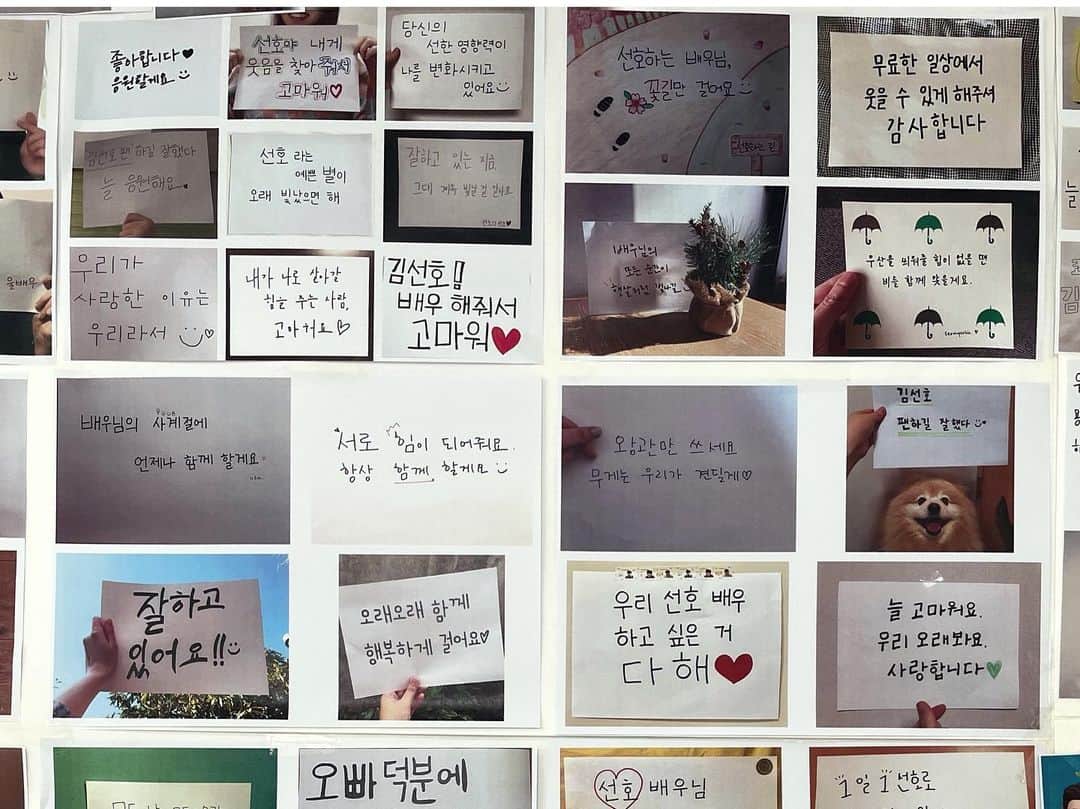 좋아합니다♥
응원할게요
선호야 내게
웃음을 찾아줘서
고마워♡
당신의
선한 영향력이
나를 변화시키고
있어요
선호하는 배우님,
꽃길만 걸어요
무료한 일상에서
웃을 수 있게 해주셔
감사합니다
김선호 팬 하길 잘했다
늘 응원해요
선호 라는
예쁜 별이
오래 빛났으면 해
잘하고 있는 지금,
우리가
사랑한 이유는
우리라서
♡
내가 나로 살아갈
힘을 주는 사람,
고마워요♡
김선호!
배우 해줘서
고마워♥
배우님의
모든 순간이
우산을 씌워줄 힘이 없을 땐
비를 함께 맞을게요.
배우님의 사계절에
언제나 함께 할게요
서로 힘이 되어줘요.
항상 함께 할게요
왕관만 쓰세요
무게는 우리가 견딜게♡
김선호
팬하길 잘했다
잘하고
있어요!!
오래오래 함께
행복하게 걸어요♡
우리 선호 배우
하고 싶은 거
다 해♥
늘 고마워요.
우리 오래봐요.
사랑합니다
오빠 덕분에
선호 배우님
1일 1선호로